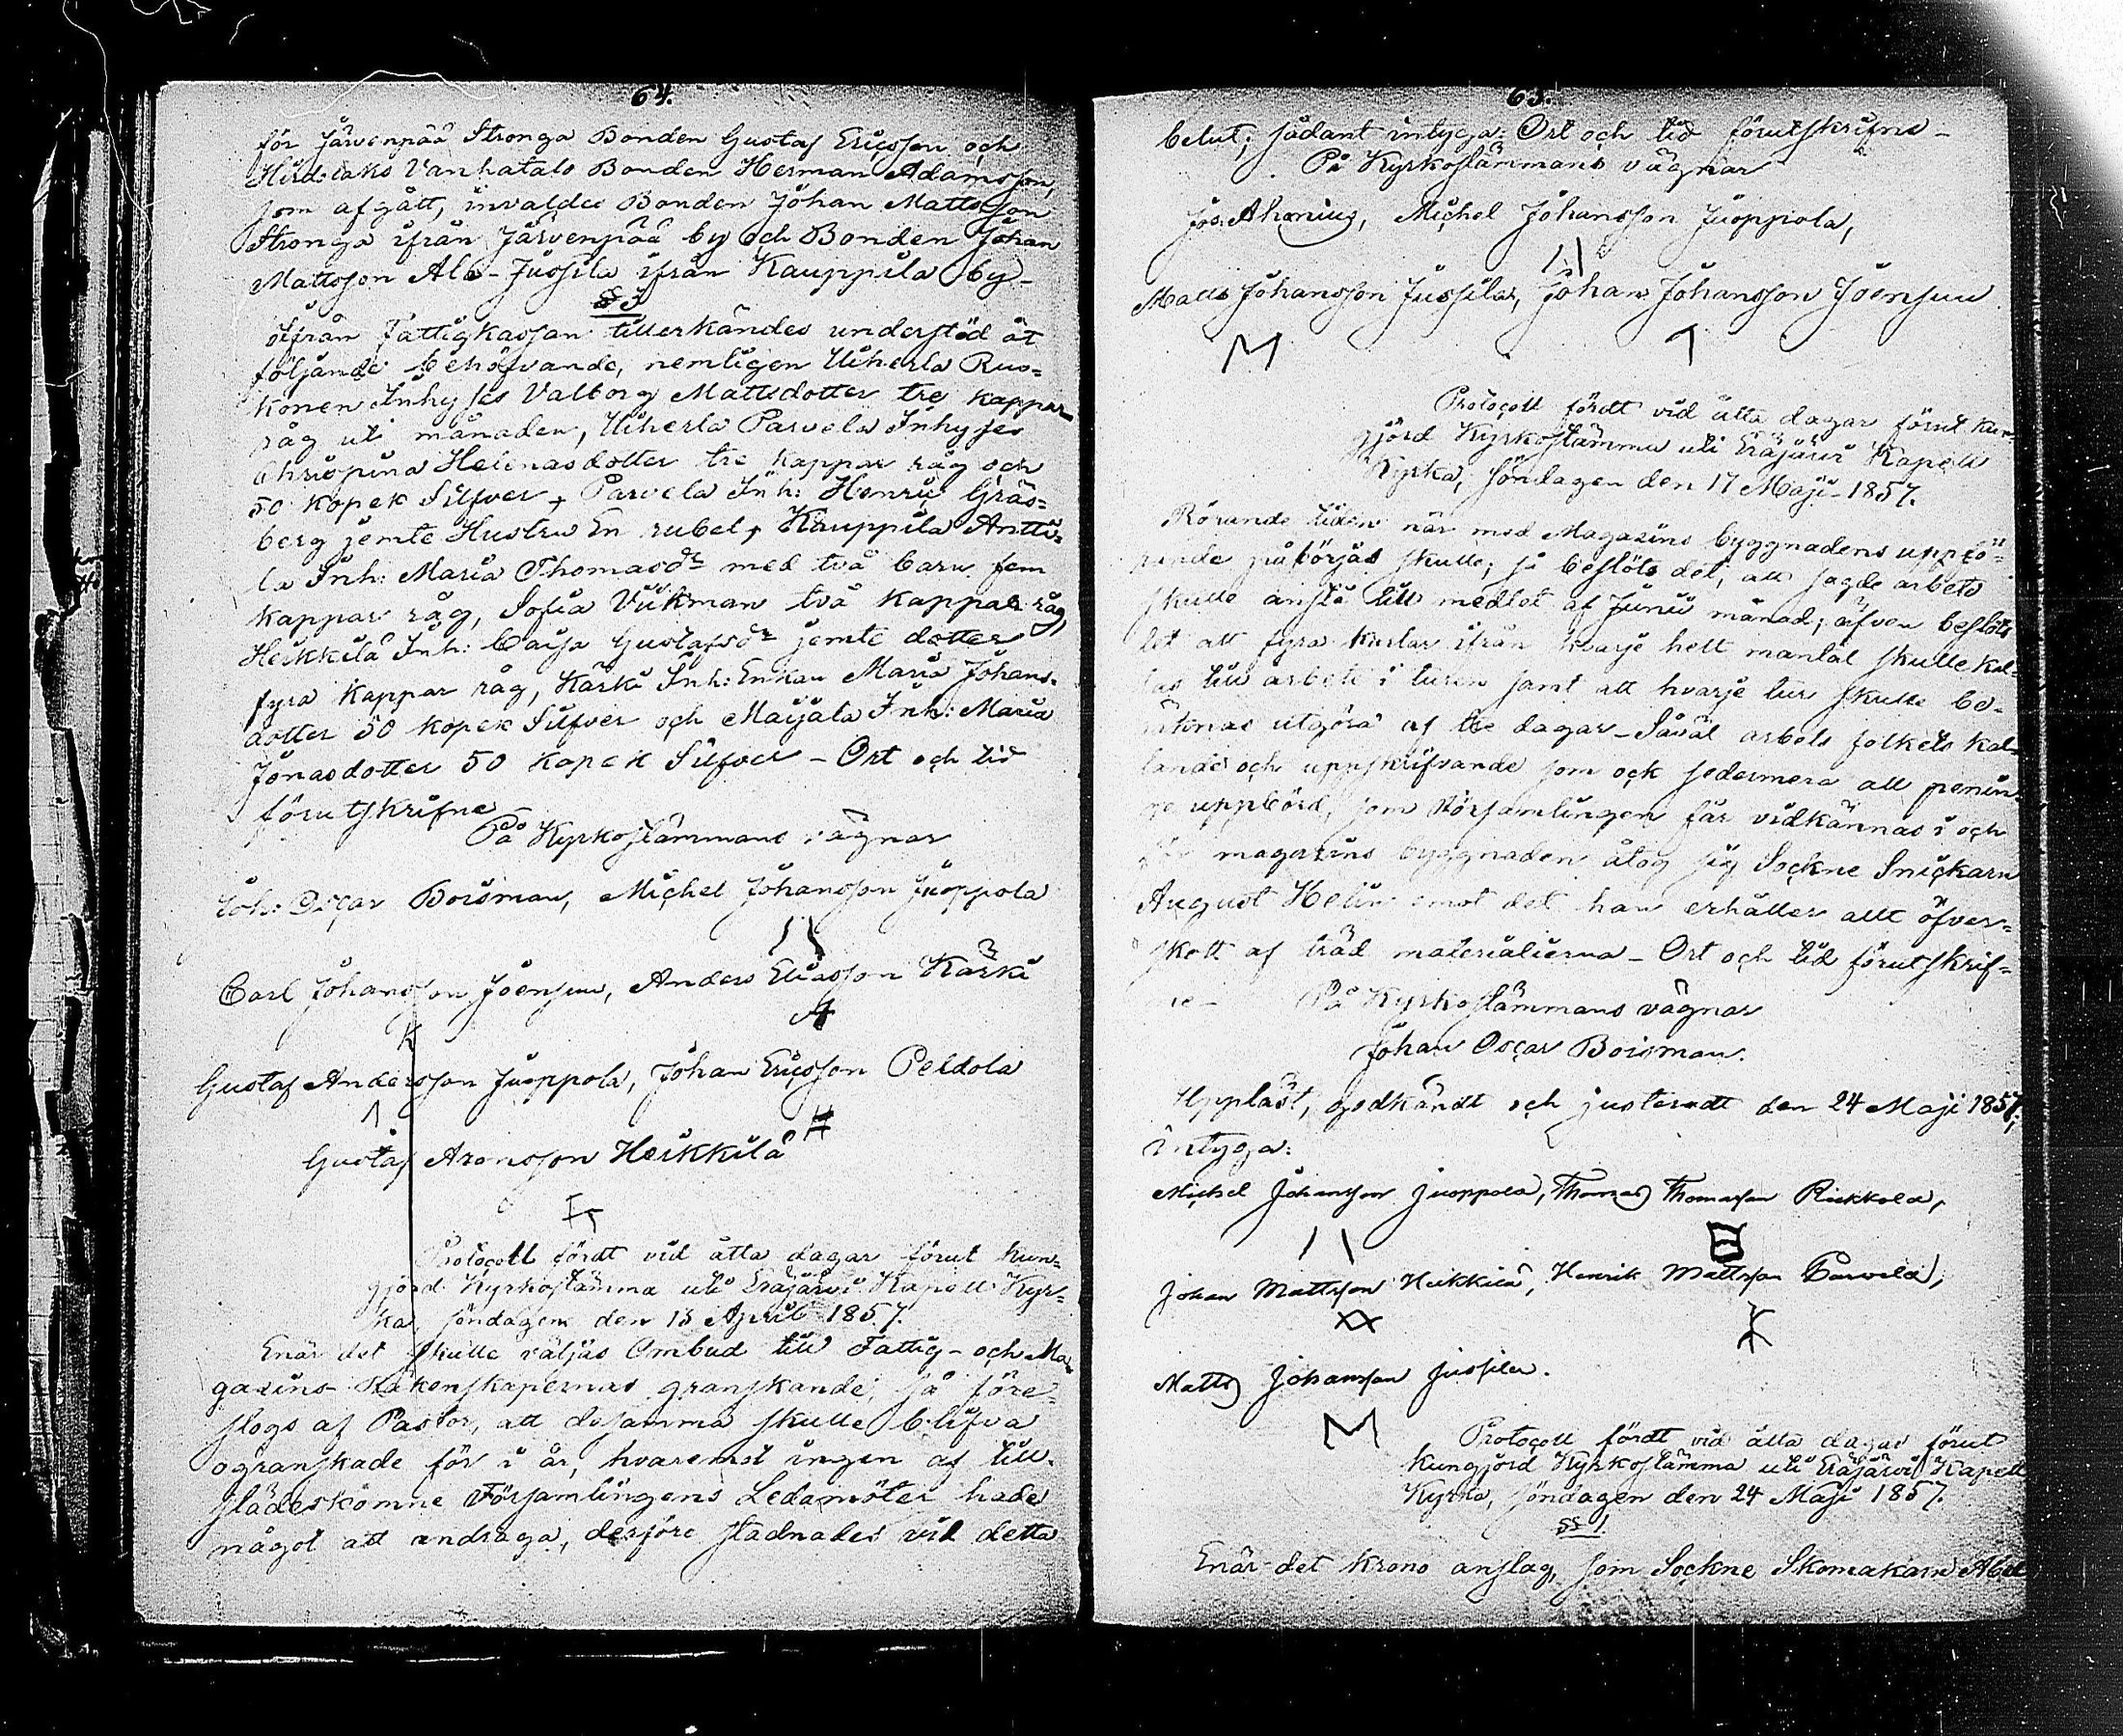 64.
för Järvenpää Stronga Bonden Gustaf Ericsson och
Vanhatalo Bonden Herman Adamsson,
som afgått, invaldes Bonden Johan Mattsson
Stronga ifrån Järvenpää by och Bonden Johan
Mattsson Ala-Jussila ifrån Kauppila by-
§ 3
Ifrån Fattigkassan tillerkändes understöd åt
följande behöfvande, nemligen Uiherla Rus=
konen Inhyses Valborg Mattsdotter tre kappar
råg uti månaden, Uiherla Parvela Inhyses
Chrispina Helenasdotter tre kappar råg och
50 kopek Silfver, Parvela Inh: Henric Gräs=
berg jemte Hustru En rubel, Kauppila Antti=
la Inh: Maria Thomasdr med två barn fem
kappar råg, Sofia Vikman två kappar råg,
Heikkilä Inh: Caisa Gustafsdr jemte dotter
fyra kappar råg, Kärki Inh: Enkan Maria Johans-
dotter 50 kopek Silfver och Maijala Inh: Maria
Jonasdotter 50 kopek Silfver - Ort och tid
förutskrifne
På Kyrkostämmans vägnar
Joh: Oscar Boisman, Michel Johansson Juoppola
Carl Johansson Joensuu, Anders Eliasson Kärki
Gustaf Andersson Juoppola, Johan Ericsson Peldola
Gustaf Aronsson Heikkilä
Protocoll fördt vid åtta dagar förut kun=
gjord Kyrkostämma uti Eräjärvi Kapell Kyr=
ka, söndagen den 13 April 1857.
Enär det skulle väljas Ombud till Fattig- och Ma=
gasins Räkenskapernas granskande, så före=
slogs af Pastor, att desamma skulle blifva
ogranskade för i år, hvaremot ingen af till-
städeskomne Församlingens Ledamöter hade
något att andraga, derföre stadnades vid detta
65.
belut; sådant intyga: Ort och tid förutskrifne -
På Kyrkostämmans vägnar
Jos: Ahonius, Michel Johansson Juoppola,
Matts Johansson Jussila, Johan Johansson Joensuu
Protocoll fördt vid åtta dagar förut kun=
gjord Kyrkostämma uti Eräjärvi Kapell
Kyrka, söndagen den 17 Maji 1857.
Rörande tiden när med Magasins byggnadens uppfö=
rande påbörjas skulle, så beslöts det, att sagde arbete
skulle anstå till medlet af Junii månad; äfven beslöts
det att fyra karlar ifrån hvarje helt mantal skulle kal=
las till arbete i turen samt att hvarje tur skulle be=
räknas utgöra af tre dagar - Såväl arbets folkets kal=
lande och uppskrifvande som ock sedermera all pennin=
ge uppbörd, som Församlingen får vidkännas i och
för magasins byggnaden åtog sig Sockne Snickarn
August Helin emot det han erhåller allt öfver=
skott af träd materialierna - Ort och tid förutskrif=
ne - På Kyrkostämmans vägnar
Johan Oscar Boisman.
Uppläst, godkändt och justeradt den 24 Maji 1857,
intyga:
Michel Johansson Juoppola, Thomas Thomasson Riekkola,
Johan Mattsson Heikkilä, Henrik Mattsson Parvela,
Matts Johansson Jussila.
Protocoll fördt vid åtta dagar förut
kungjord Kyrkostämma uti Eräjärvi Kapell
Kyrka, söndagen den 24 Maji 1857.
§ 1.
Enär det krono anslag, som Sockne Skomakarn Abel